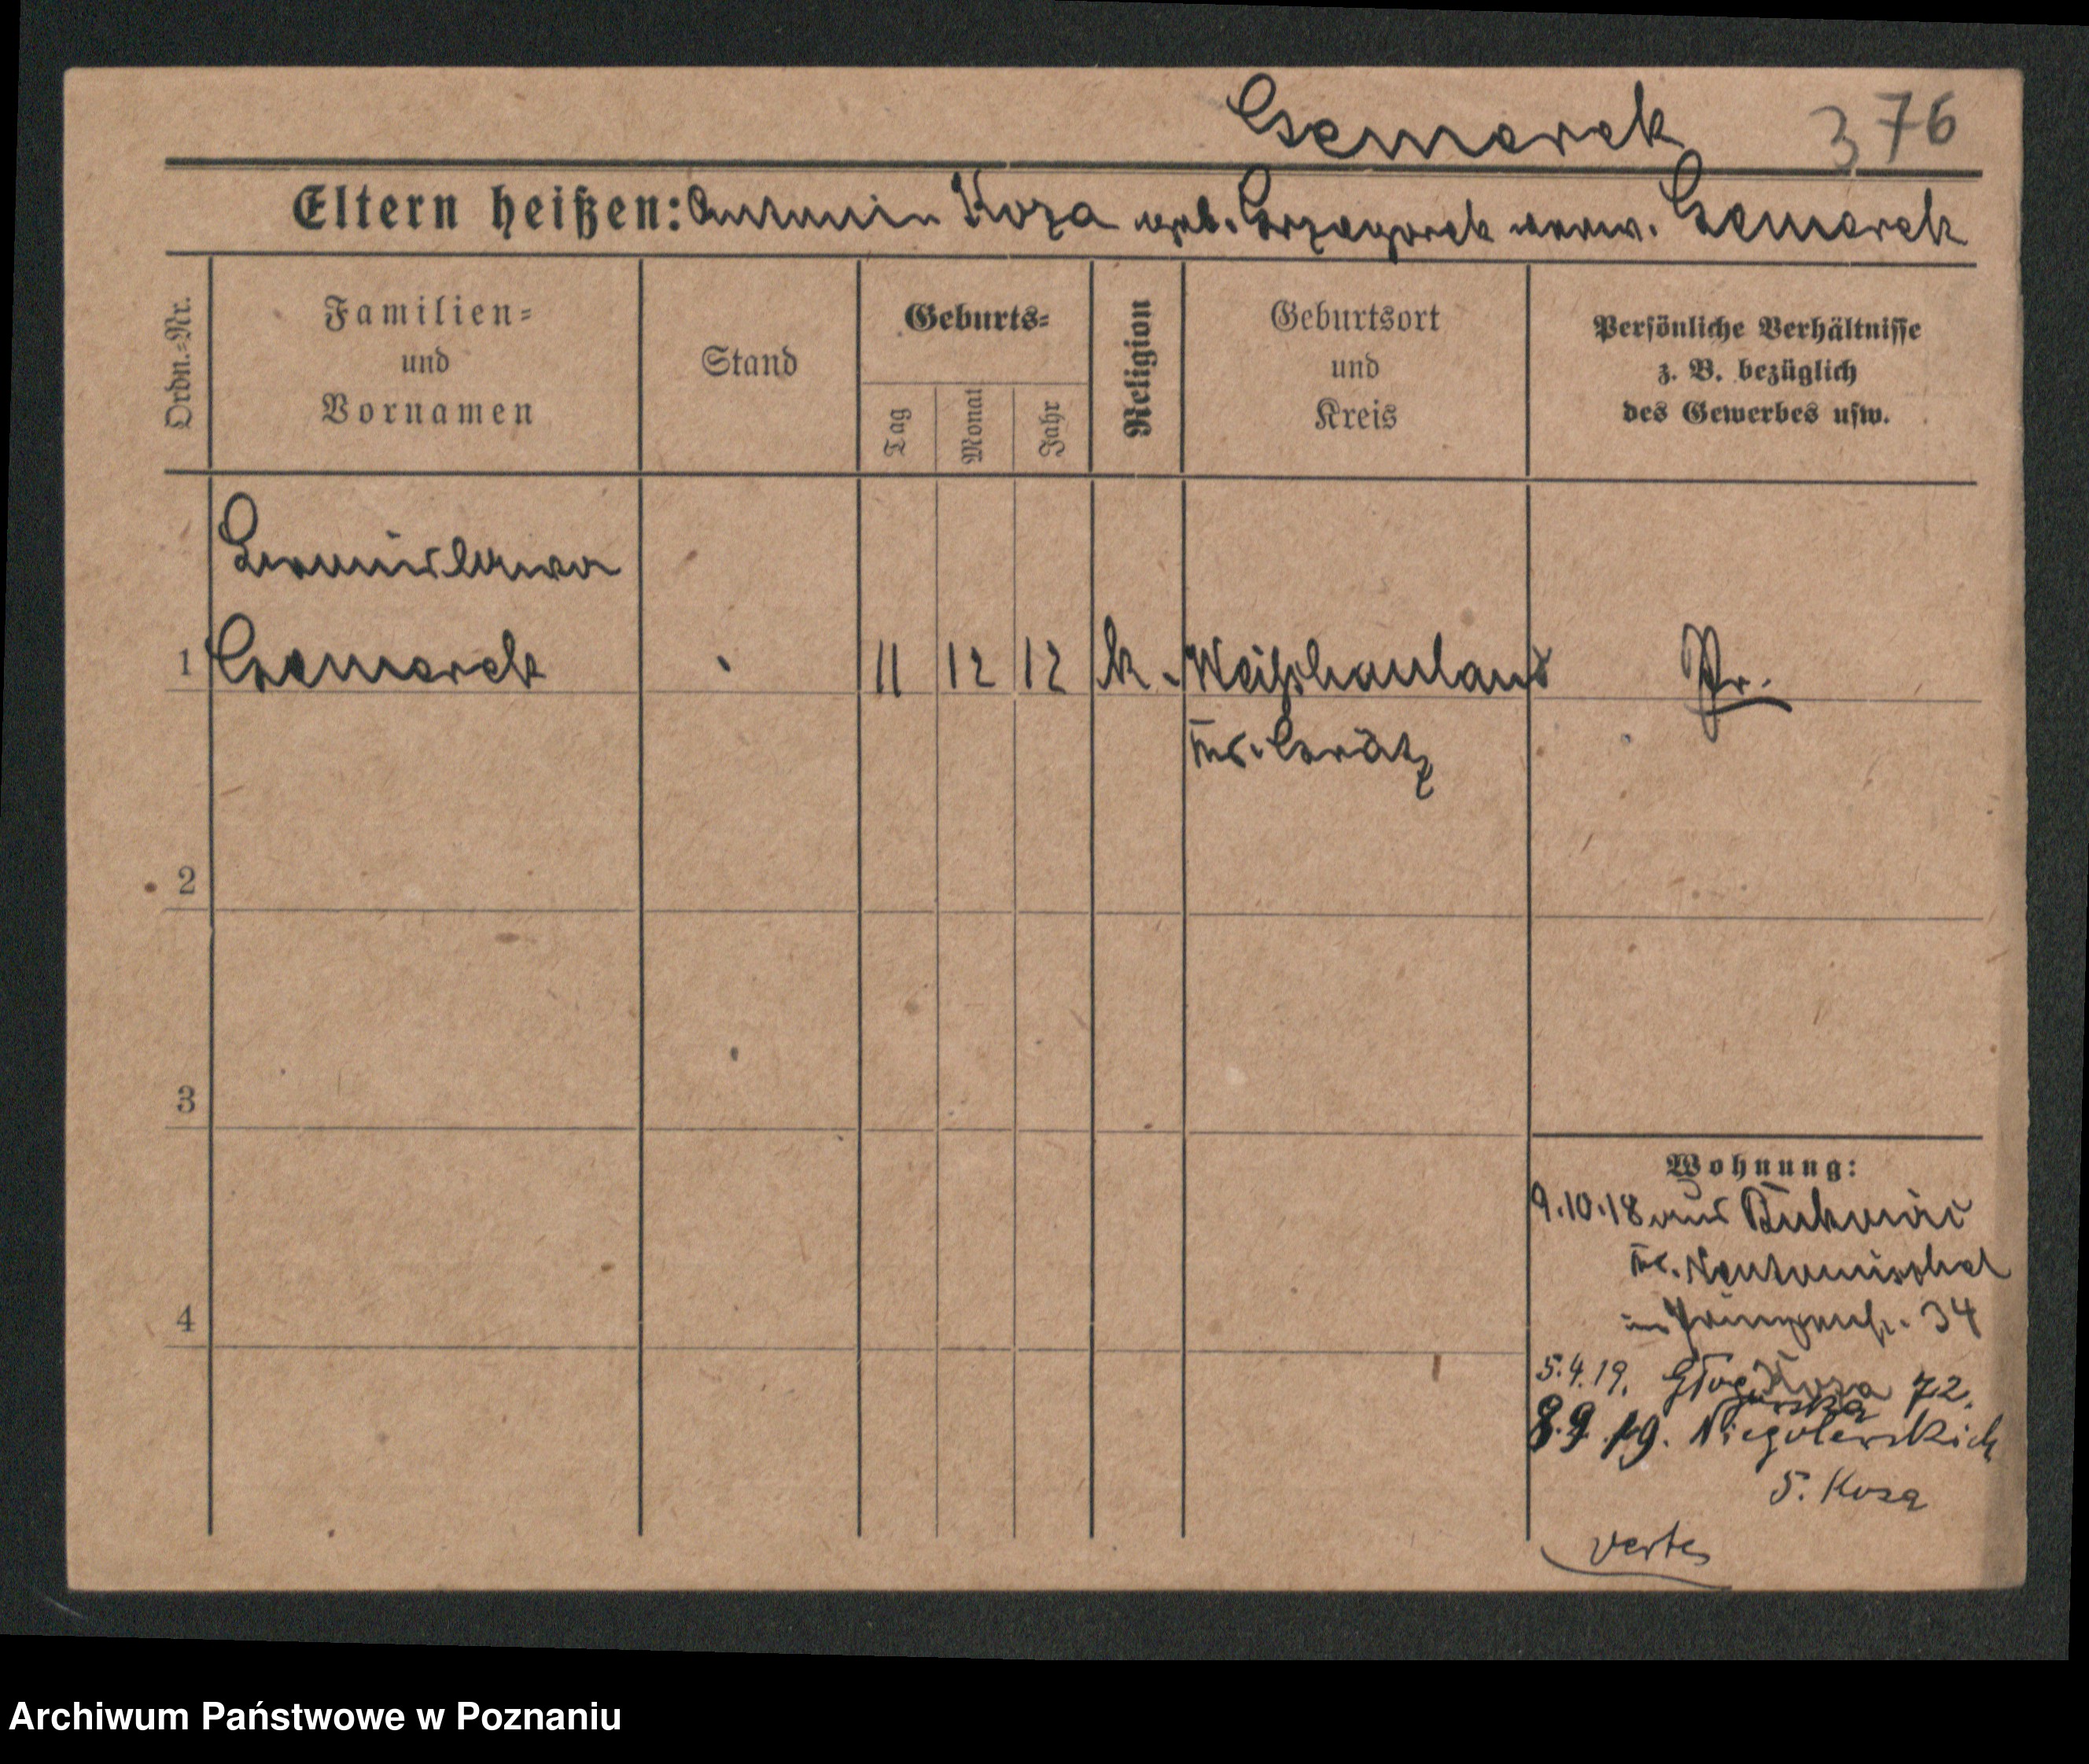 Csemerek 376
Eltern heißen: Antonin Koza geb. Grzegorek verw. Csemerek
Ordn.-Nr.
Familien-
und
Vornamen
Stand
Geburts-
Tag
Monat
Jahr
Religion
Geburtsort
und
Kreis
Persönliche Verhältnisse
z. B. bezüglich
des Gewerbes usw.
1 Csemerek 11 12 12 k. Weißhauland Pr.
Krs. Grätz
2
3
4
Wohnung:
9.10.18 aus
Kr. Neutomischel
34
5.4.19. Głogowska Koza 72.
8.9.19. Niegolewskich
5. Koza
vertes
Archiwum Państwowe w Poznaniu